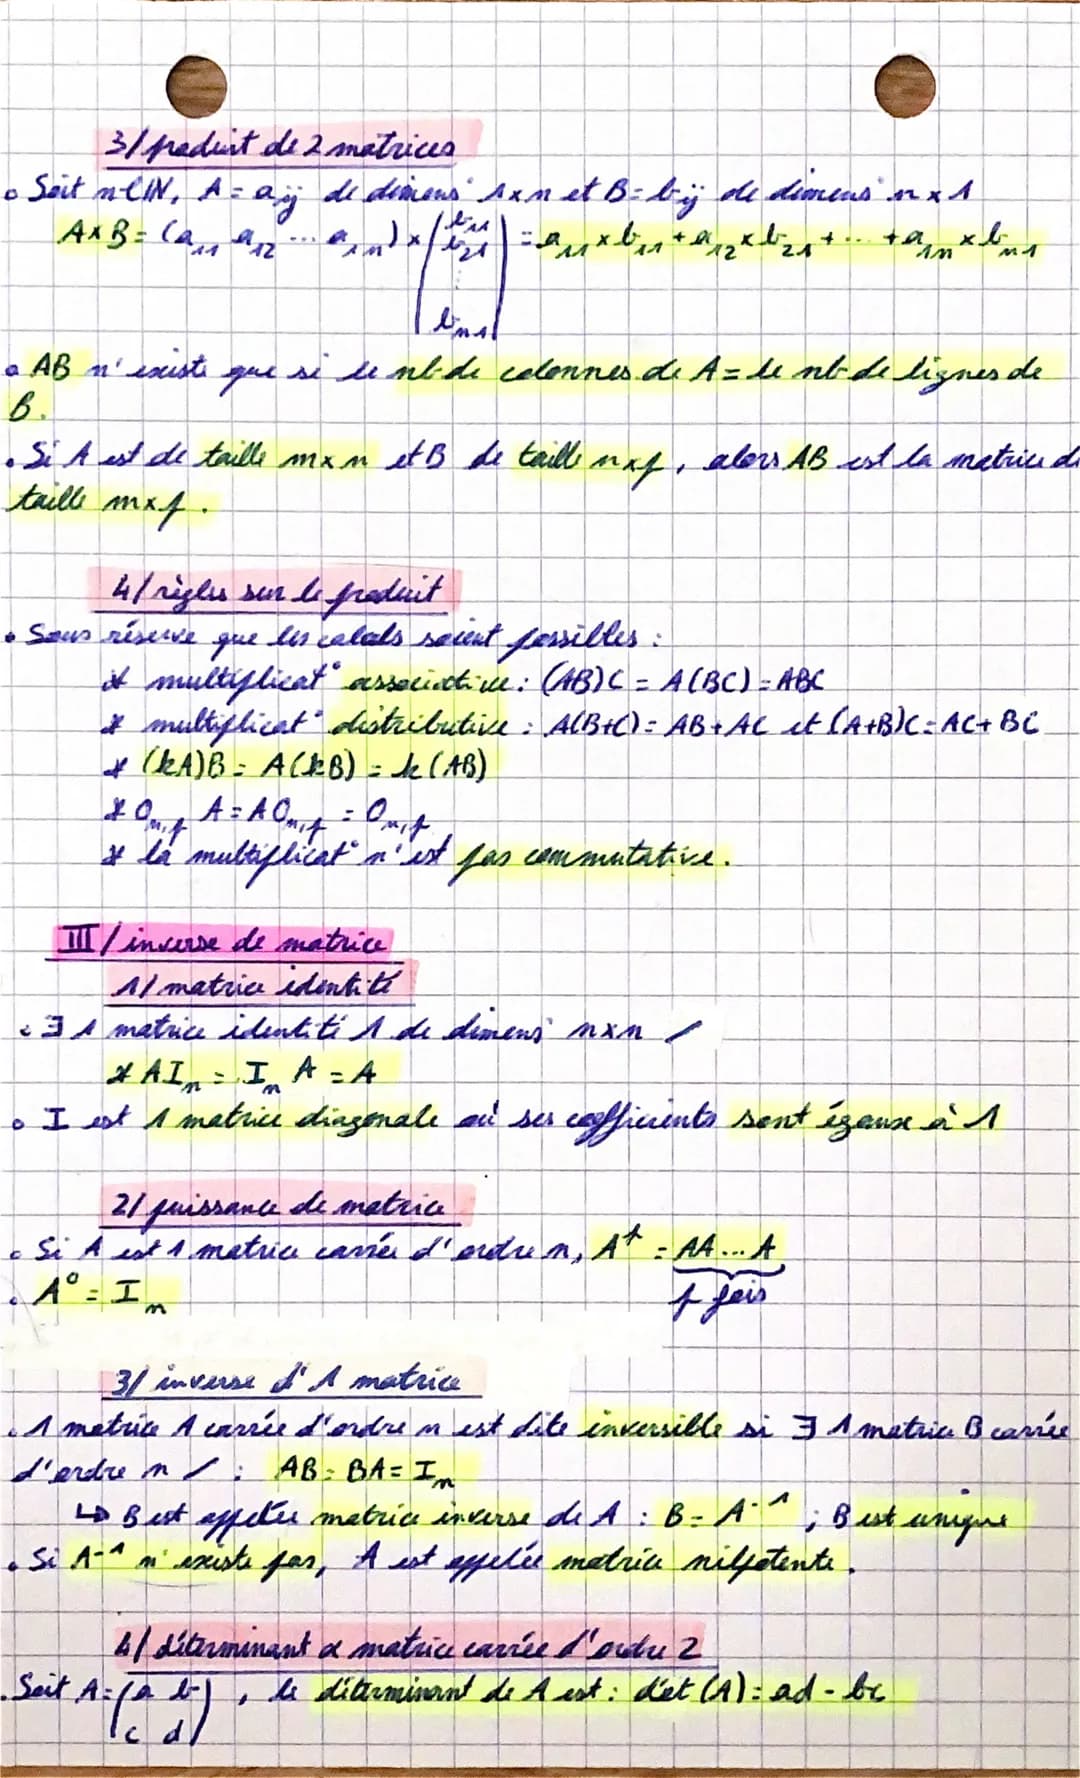 3/ produit de 2 matrices
Soit n∈ℕ, A = aij de dimens° 1×n et B = bij de dimens° n×1
A×B = (a11 a12 ... a1n) × (b11 b21 ⋮ bn1) = a11×b11 + a12×b21 + ... + a1n×bn1
AB n'existe que si le nb de colonnes de A = le nb de lignes de
B.
Si A est de taille m×n et B de taille n×p, alors AB est la matrice de
taille m×p.
4/ règles sur le produit
Sous réserve que les calculs soient possibles :
* multiplicat° associative : (AB)C = A(BC) = ABC
* multiplicat° distributive : A(B+C) = AB + AC et (A+B)C = AC + BC
* (kA)B = A(kB) = k(AB)
* On,p A = A On,p = On,p
* la multiplicat° n'est pas commutative.
III/ inverse de matrice
1/ matrice identité
∃ 1 matrice identité 1 de dimens° n×n /
* AIn = In A = A
I est 1 matrice diagonale où ses coefficients sont égaux à 1
2/ puissance de matrice
Si A est 1 matrice carrée d'ordre n, A^p = AA...A
p fois
A⁰ = In
3/ inverse d'1 matrice
1 matrice A carrée d'ordre n est dite inversible si ∃ 1 matrice B carrée
d'ordre n / : AB = BA = In
↳ B est appelée matrice inverse de A : B = A⁻¹ ; B est unique
Si A⁻¹ n'existe pas, A est appelée matrice nilpotente.
4/ déterminant d matrice carrée d'ordre 2
Soit A = (a b
c d), le déterminant de A est : dét(A) = ad - bc